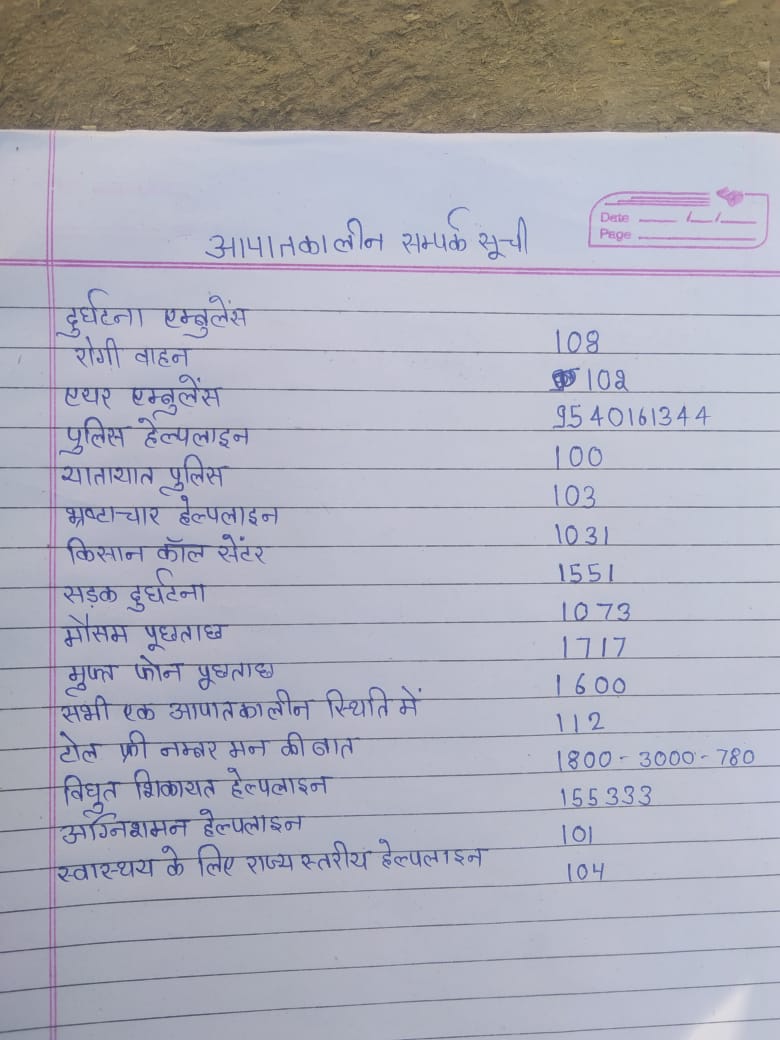 Date ___/__/___
Page ___
आपातकालीन सम्पर्क सूची
दुर्घटना एम्बुलेंस 108
रोगी वाहन 102
एयर एम्बुलेंस 9540161344
पुलिस हेल्पलाइन 100
यातायात पुलिस 103
भ्रष्टाचार हेल्पलाइन 1031
किसान कॉल सेंटर 1551
सड़क दुर्घटना 1073
मौसम पूछताछ 1717
मुफ्त फोन पूछताछ 1600
सभी एक आपातकालीन स्थिति में 112
टोल फ्री नम्बर मन की बात 1800-3000-780
विधुत शिकायत हेल्पलाइन 155333
अग्निशमन हेल्पलाइन 101
स्वास्थय के लिए राज्य स्तरीय हेल्पलाइन 104